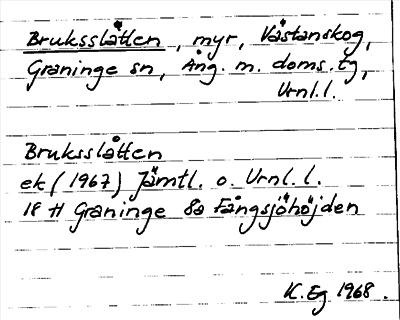 Bruksslåtten, myr, Västanskog,
Graninge sn, Ång. m. doms.tg,
Vrnl.l.
Bruksslåtten
ek (1967) Jämtl. o. Vrnl.l.
18 H Graninge 8a Fångsjöhöjden
K. Eg 1968.